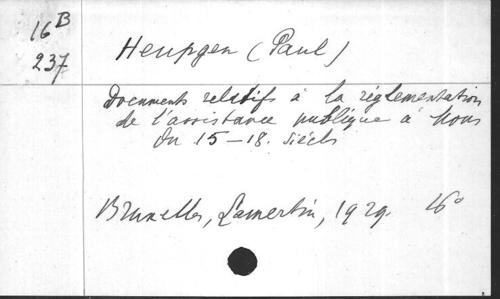 16B
237
Heupgen (Paul)
Documents relatifs à la réglementation
de l'assistance publique à Mons
du 15-18. siècle
Bruxelles, Lamertin, 1929. 16°